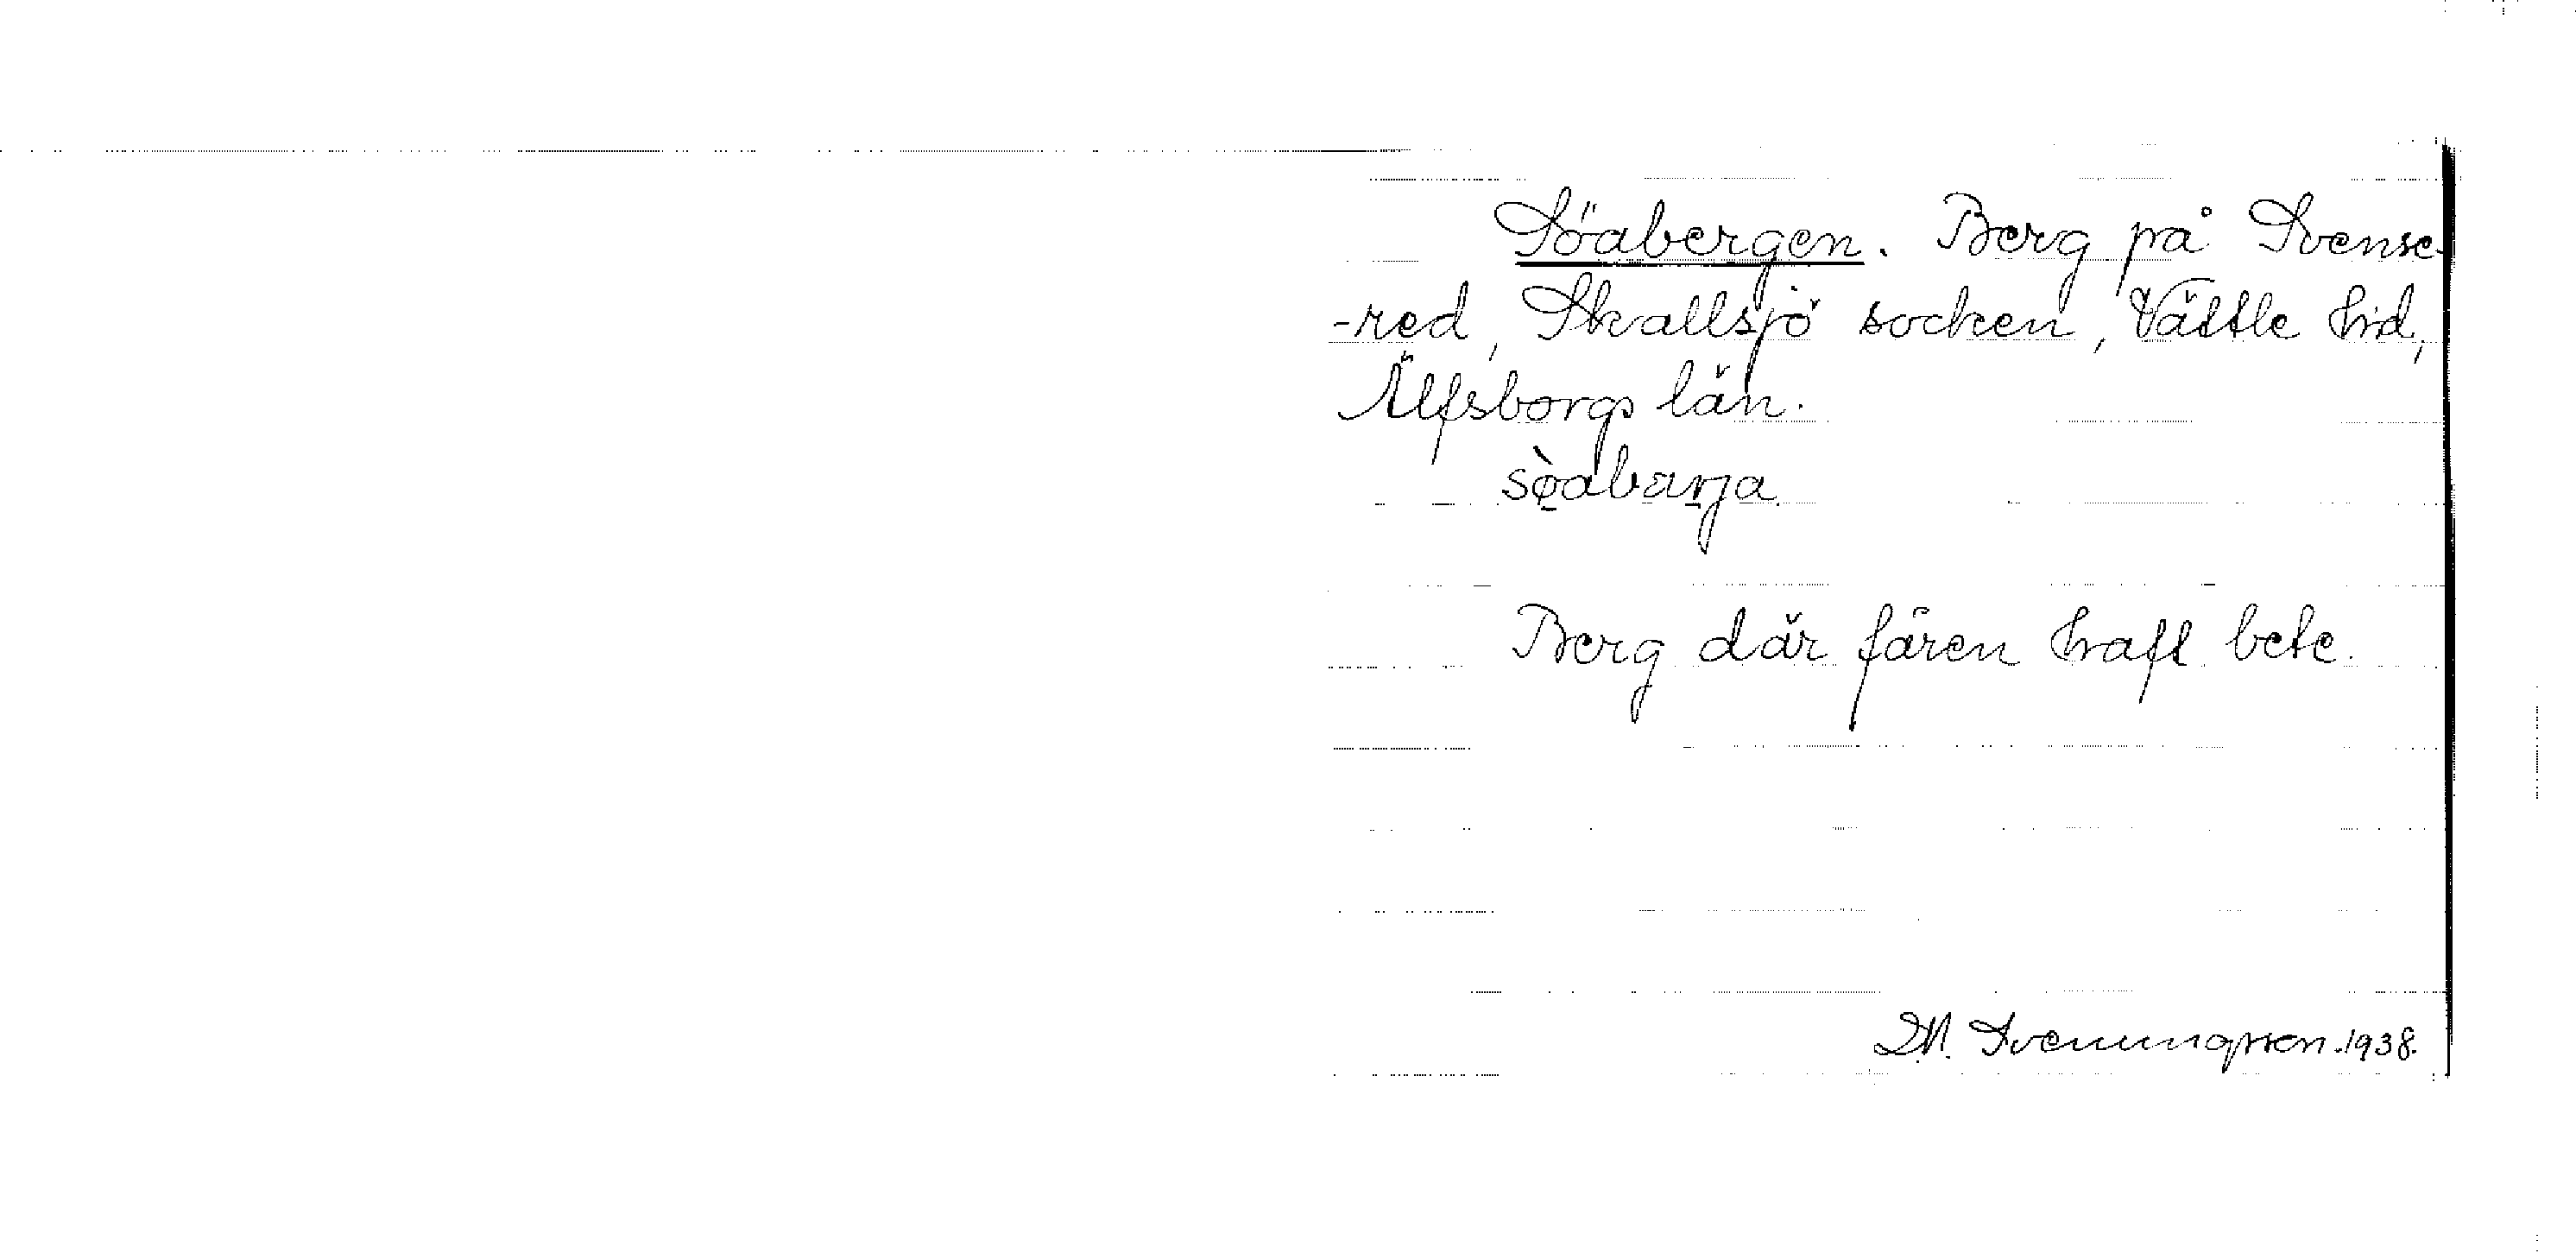 Söabergen. Berg på Svense-
-red, Skallsjö socken, Vättle hd,
Älfsborgs län.
sø̀abærja
Berg där fåren haft bete.
M. Svenungsson. 1938.